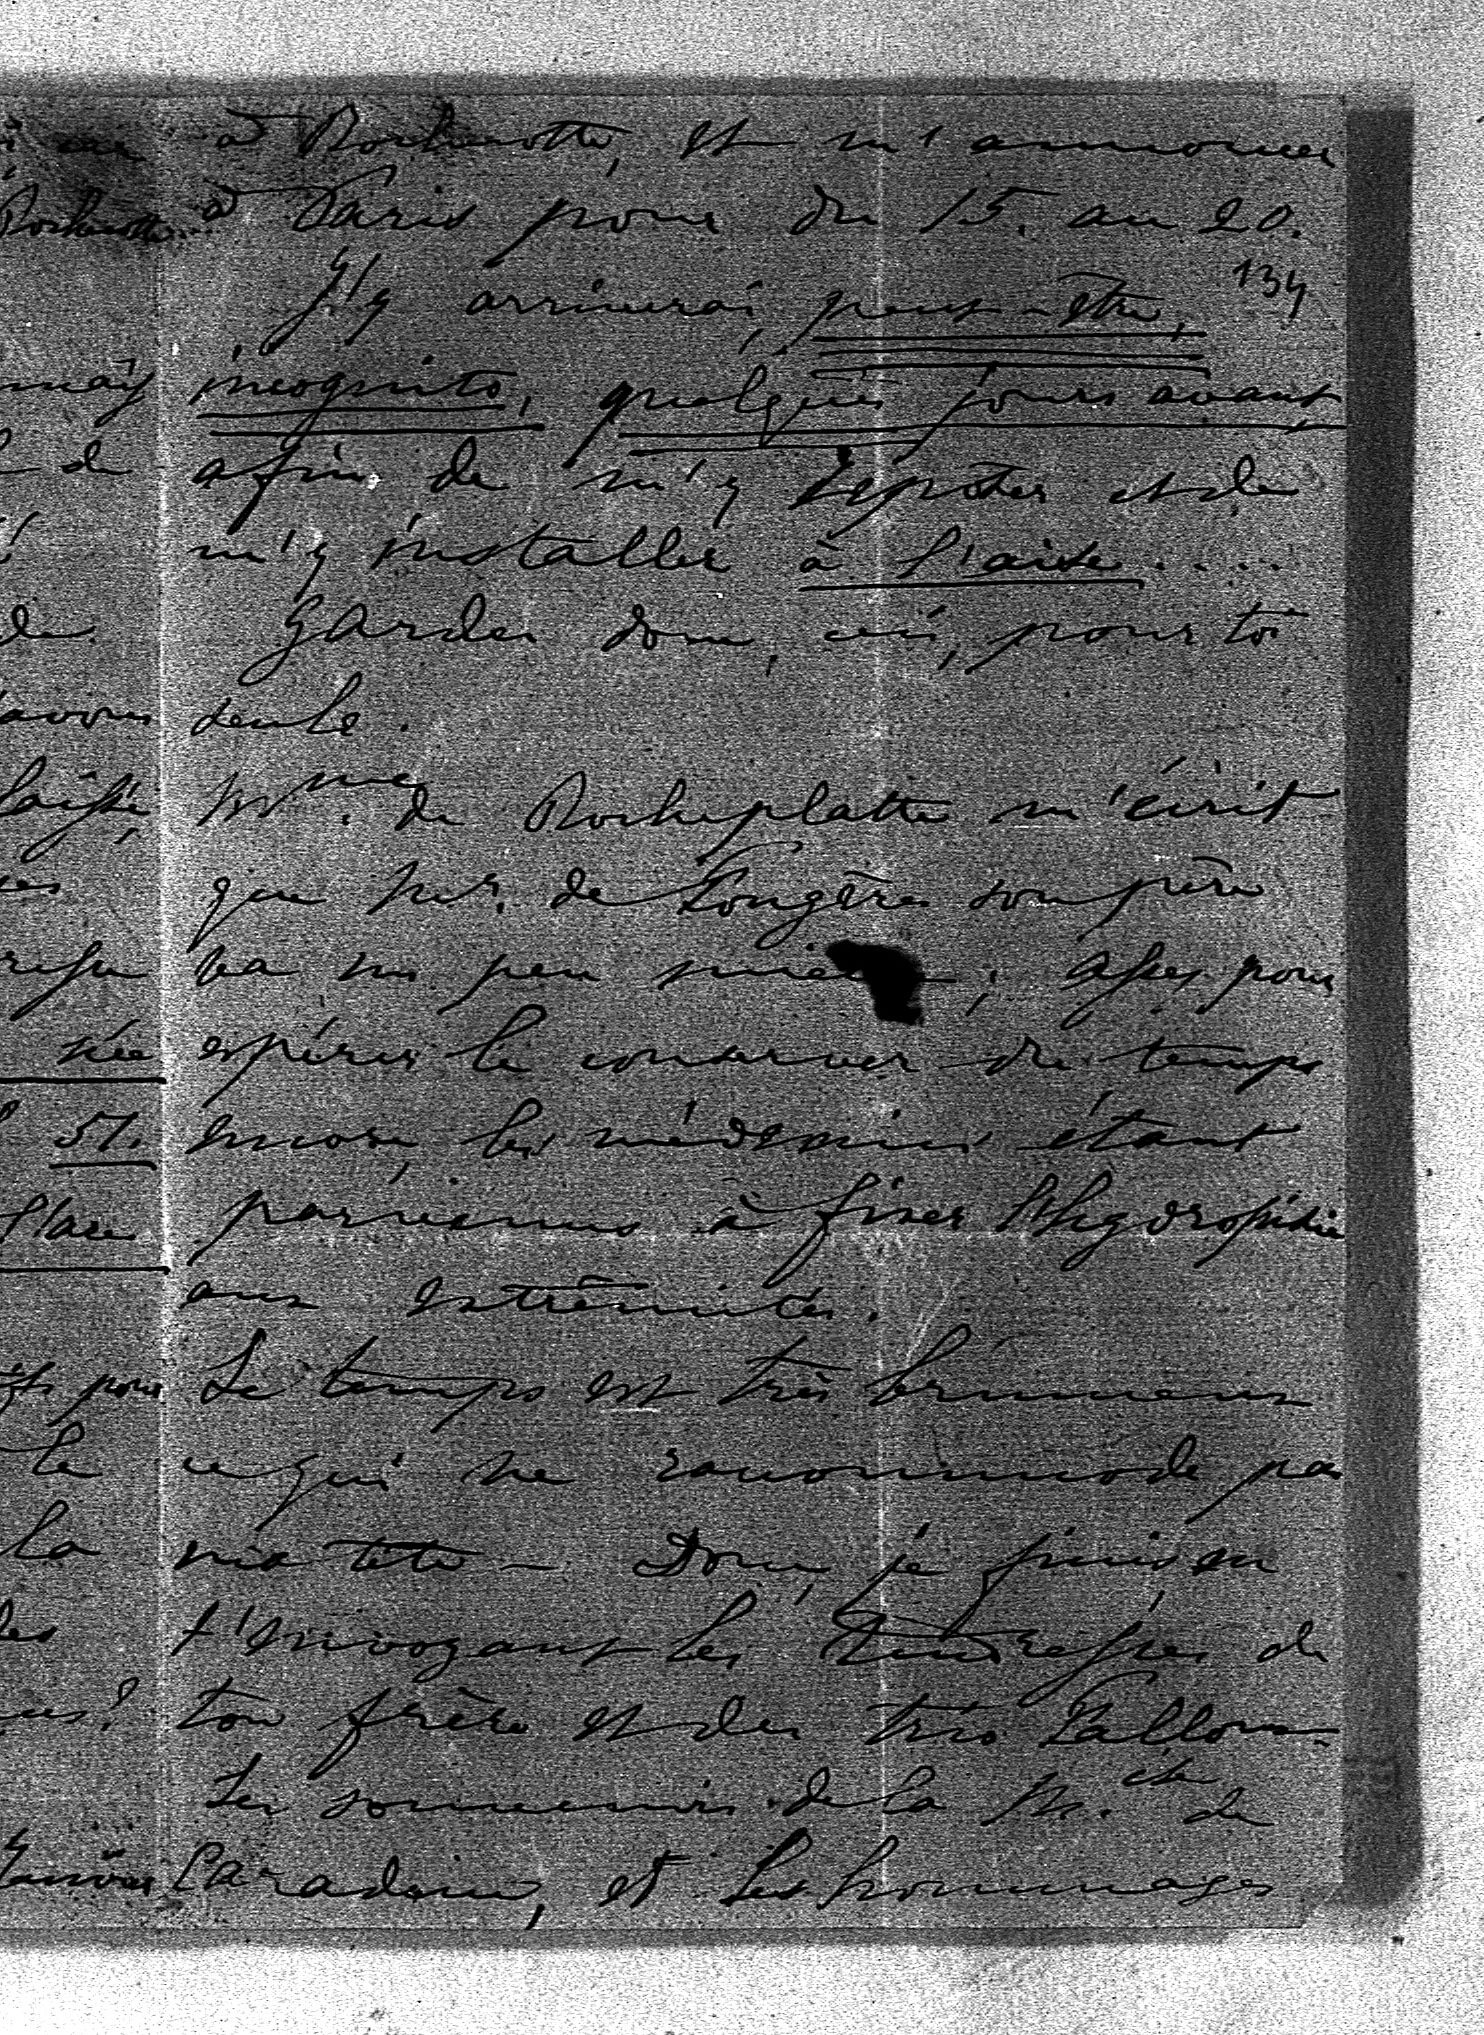 à Rochecotte, et m'annonce
à Paris pour du 15. au 20.
134
J'y arriverai, peut-être,
incognito, quelques jours avant
afin de m'y reposer et de
m'y installer à l'aise....
Gardes donc, ceci, pour toi
seule.
Mme. de Rocheplatte m'écrit
que Mr. de Fougères son père
va un peu mieux, assez pour
espérer le conserver du temps
encore, les médecins étant
parvenus à fixer l'hydropisie
aux extrêmités.
Le temps est très brumeux
ce qui ne raccommode pas
ma tête - Donc, je finis en
t'envoyant les tendresses de
ton frère et des trio
Les souvenirs de la M. de
et les hommages
Rochecotte
de
de
avons
laissé,
née
51.
place
pour
le
la
des